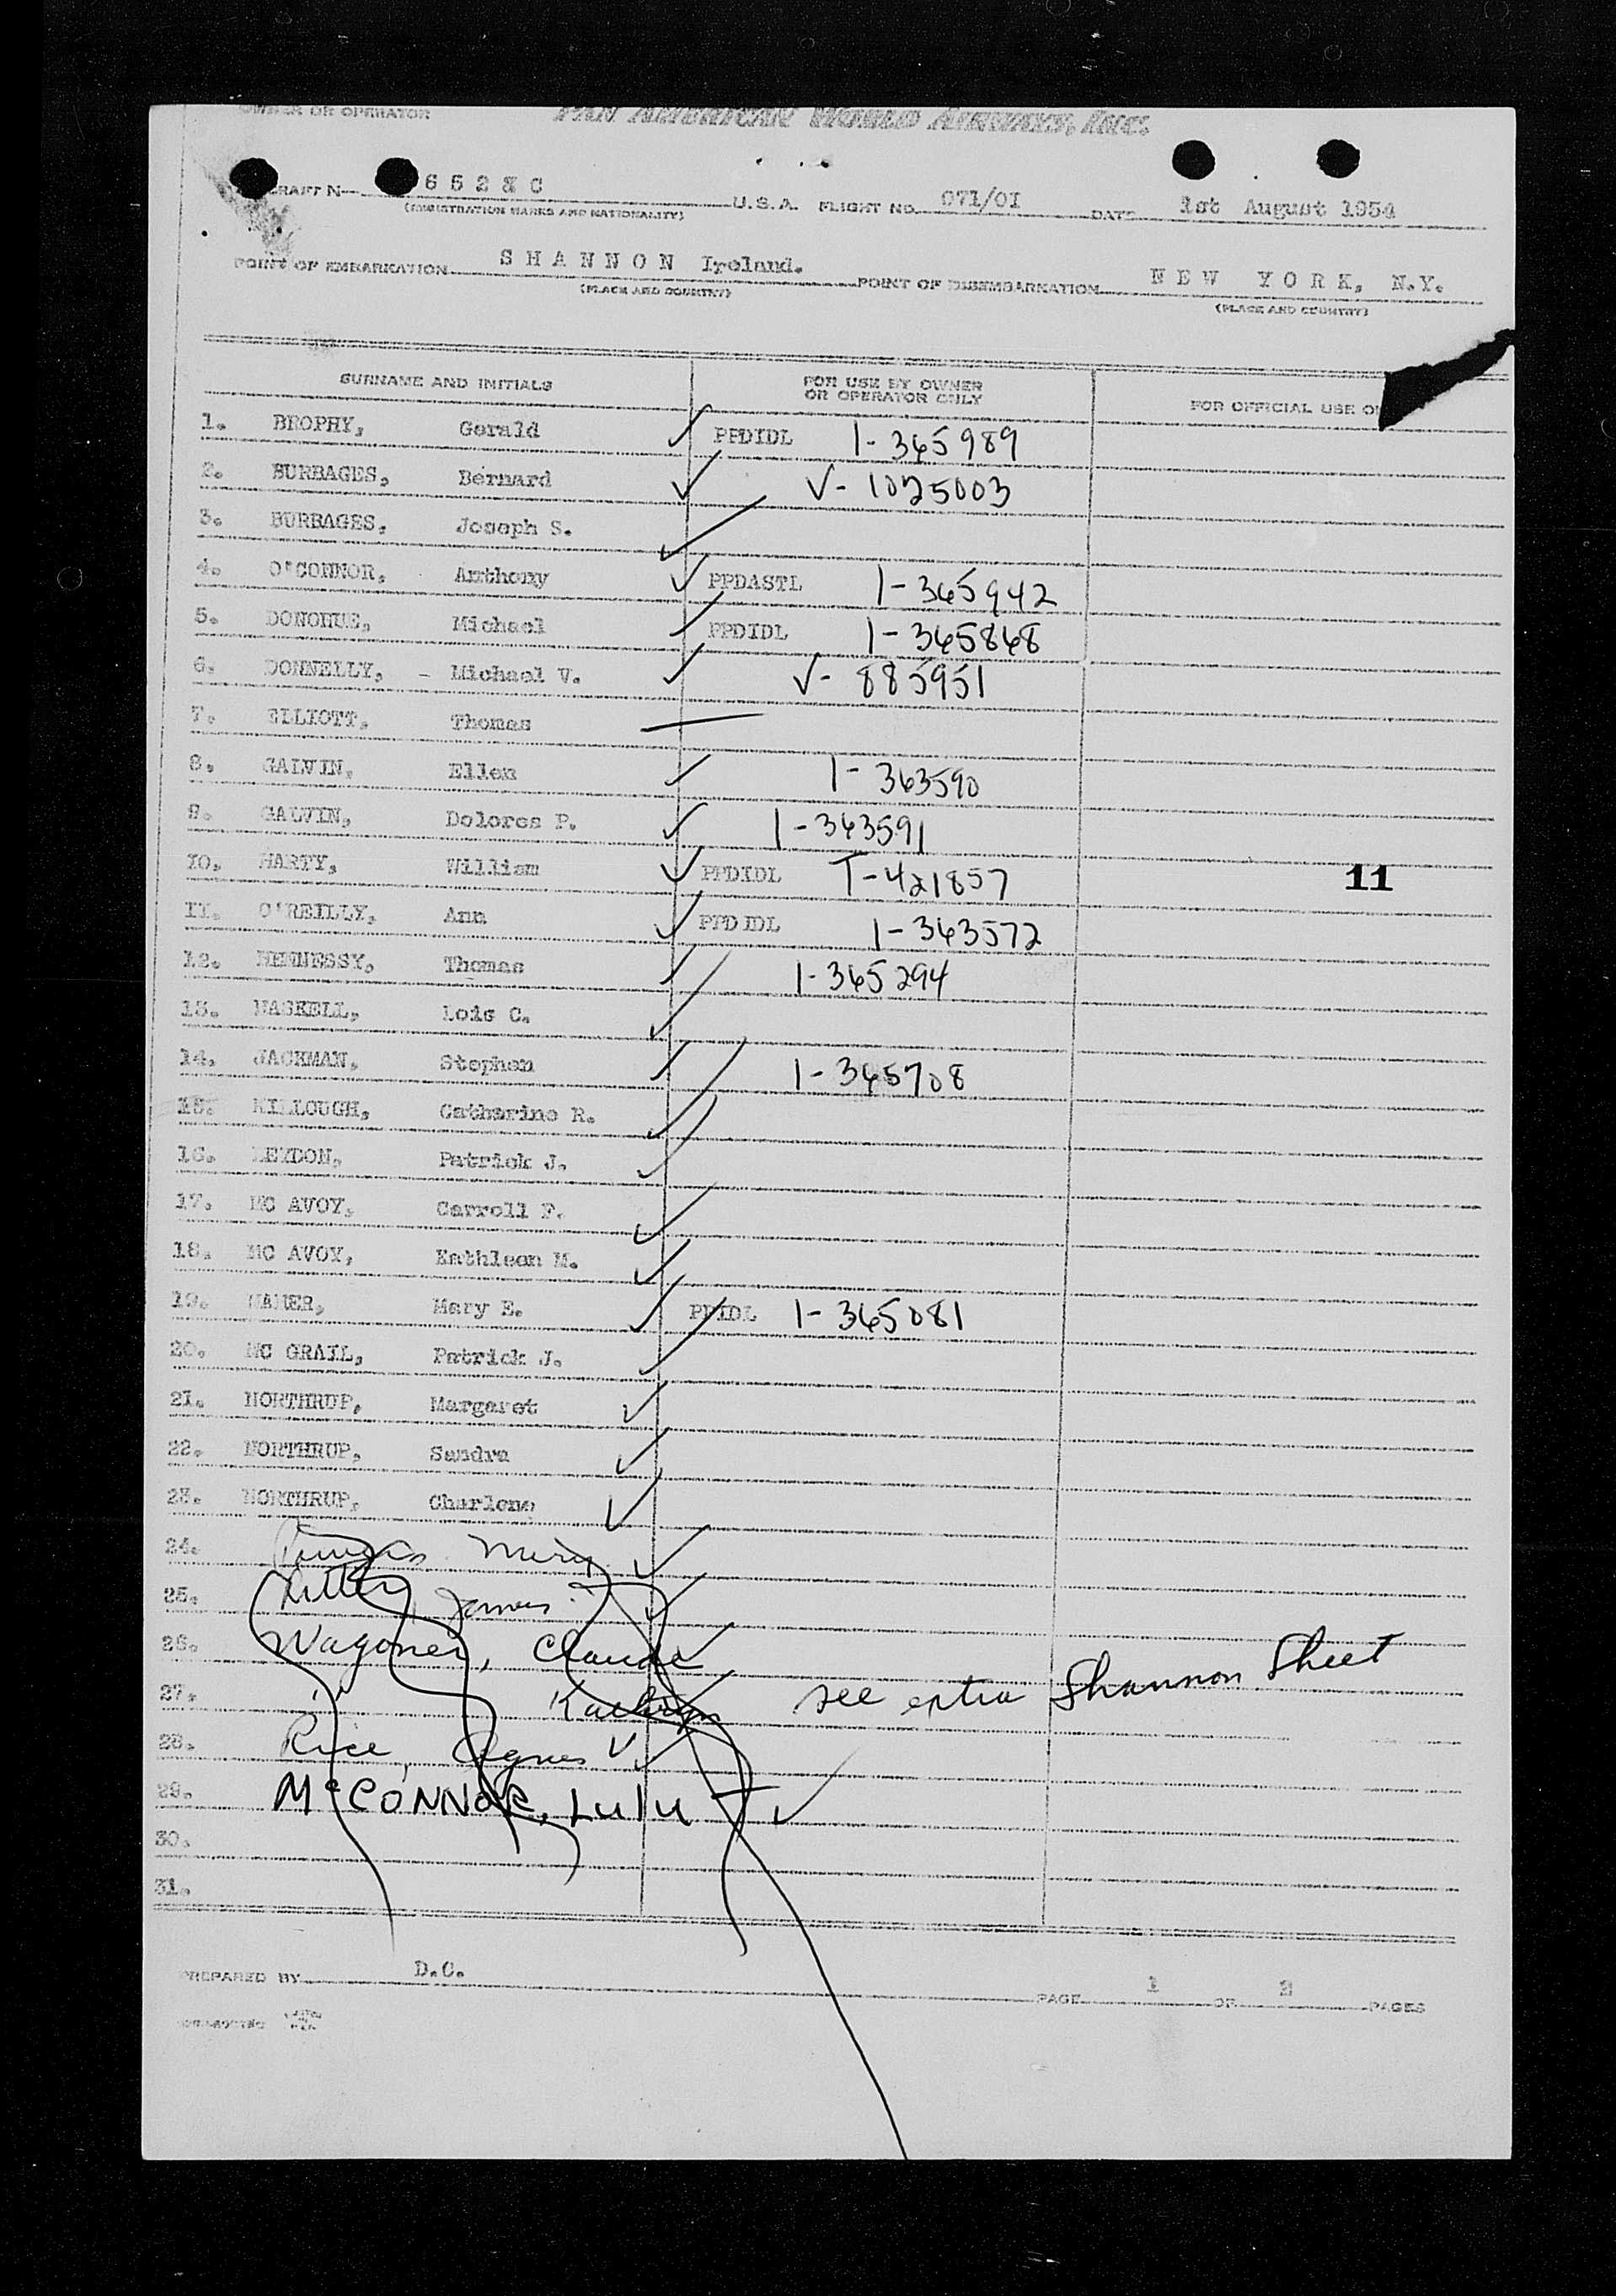 OWNER OR OPERATOR PAN AMERICAN WORLD AIRWAYS, INC.
CRAFT N 6528C U.S.A. FLIGHT NO. 071/01 DATE 1st August 1954
(REGISTRATION MARKS AND NATIONALITY)
POINT OF EMBARKATION SHANNON Ireland. POINT OF DISEMBARKATION NEW YORK, N.Y.
(PLACE AND COUNTRY) (PLACE AND COUNTRY)
SURNAME AND INITIALS FOR USE BY OWNER OR OPERATOR ONLY FOR OFFICIAL USE O
1. BROPHY, Gerald PPDIDL 1-365989
2. BURBAGES, Bernard V-1025003
3. BURBAGES, Joseph S.
4. O'CONNOR, Anthony PPDASTL 1-365942
5. DONOHUE, Michael PPDIDL 1-365868
6. DONNELLY, - Michael V. V-885951
7. ELLIOTT, Thomas
8. GALVIN, Ellen 1-363590
9. GALVIN, Dolores P. 1-363591
10. HARTY, William PPDIDL T-421857 11
11. O'REILLY, Ann PPDIDL 1-363572
12. HENNESSY, Thomas 1-365294
13. HASKELL, Lois C.
14. JACKMAN, Stephen 1-365708
15. KILLOUGH, Catharine R.
16. LEYDON, Patrick J.
17. MC AVOY, Carroll F.
18. MC AVOY, Kathleen M.
19. MAHER, Mary E. PPIDL 1-365081
20. MC GRAIL, Patrick J.
21. NORTHRUP, Margaret
22. NORTHRUP, Sandra
23. NORTHRUP, Charlene
24. Mary
25. James
26. Wagoner, Claude
27. " Kathryn see extra Shannon Sheet
28. Rice, Agnes
29. McCONNOR, Lulu
30.
31.
PREPARED BY D.C. PAGE 1 OF 2 PAGES